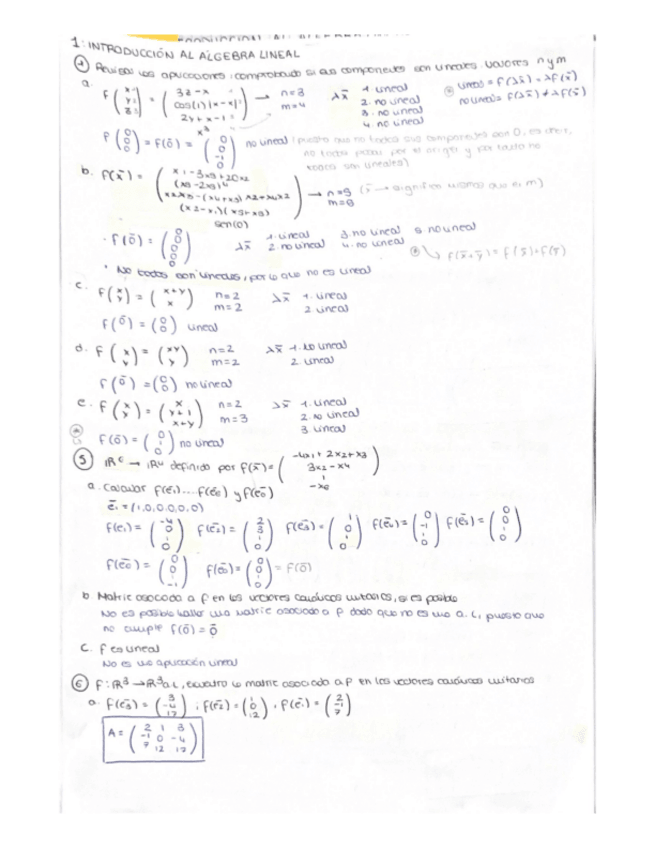 1: INTRODUCCIÓN AL ÁLGEBRA LINEAL
Revisar las aplicaciones, comprobando si sus componentes son lineales. Valores n y m
a.
f (x y z) = (3z-x
cos(1)|x-
2y+x-1
x³) → n=3 m=4
λx̄ 1. lineal
2. no lineal
3. no lineal
4. no lineal
lineal = f(λx̄) = λf(x̄)
no lineal = f(λx̄) ≠ λf(x̄)
f (0 0 0) = f(ō) = (0 0 -1 0) no lineal (puesto que no todos sus componentes son 0, es decir,
no todos pasan por el origen y por tanto no
todos son lineales)
b. f(x̄) = (x1-3x3+20x2
(x3-2x3)4
(x2-x1)(x3+x3)
sen(0)) → n=9 m=8
f(ō) = (0 0 0 0 0) λx̄ 1. lineal 2. no lineal 3. no lineal 4. no lineal 5 no lineal
f(x̄+ȳ) = f(x̄)+f(ȳ)
No todos son lineales, por lo que no es lineal
c. f (x y) = (x+y x) n=2 m=2 λx̄ 1. lineal 2 lineal
f(ō) = (0 0) lineal
d. f (x y) = (xy y) n=2 m=2 λx̄ 1. no lineal 2 lineal
f(ō) = (0 0) no lineal
e. f (x y) = (x y+1 x+y) n=2 m=3 λx̄ 1. lineal 2. no lineal 3. lineal
f(ō) = (0 1 0) no lineal
5 IR⁶ → IR⁴ definido por f(x̄) = (-4x1+2x2+x3
3x2-x4
1
-x6)
a. Calcular f(ē1)....f(ē6) y f(ē0)
ē1 = (1,0,0,0,0,0)
f(ē1) = (-4 0 1 0) f(ē2) = (2 3 1 0) f(ē3) = (1 0 1 0) f(ē4) = (0 -1 1 0) f(ē5) = (0 0 1 0)
f(ē6) = (0 0 1 -1) f(ē0) = (0 0 1 0) = f(ō)
b Matriz asociada a f en los vectores canónicos unitarios, si es posible
No es posible hallar una matriz asociada a f dado que no es una a. L, puesto que
no cumple f(ō) = ō
c. f es lineal
No es una aplicación lineal
6 f: IR³ → IR³ a.L, encuentra la matriz asociada a f en los vectores canónicos unitarios
a. f(ē3) = (3 -4 17) ; f(ē2) = (1 0 12) , f(ē1) = (2 -1 7)
A = (2 1 3
-1 0 -4
7 12 17)